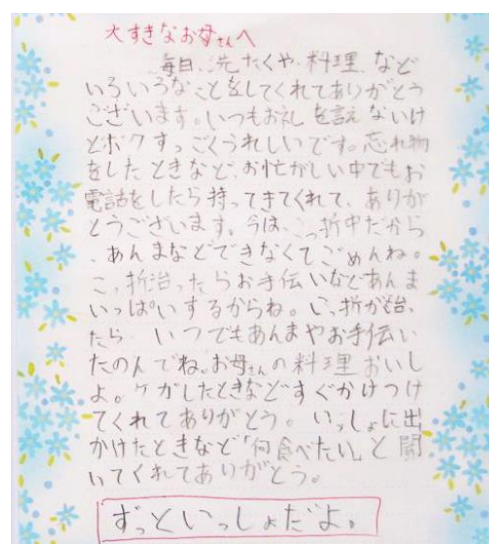 大すきなお母さんへ
毎日、洗たくや、料理、など
いろいろなことをしてくれてありがとう
ございます。いつもお礼を言えないけ
どボクすっごくうれしいです。忘れ物
をしたときなど、お忙がしい中でもお
電話をしたら持ってきてくれて、ありが
とうございます。今は、こっ折中だから
、あんまなどできなくてごめんね。
こっ折治ったらお手伝いなどあんま
いっぱいするからね。こっ折が治っ
たら いつでもあんまやお手伝い
たのんでね。お母さんの料理おいし
よ。ケガしたときなどすぐかけつけ
てくれてありがとう。いっしょに出
かけたときなど「何食べたい」と聞
いてくれてありがとう。
ずっといっしょだよ。